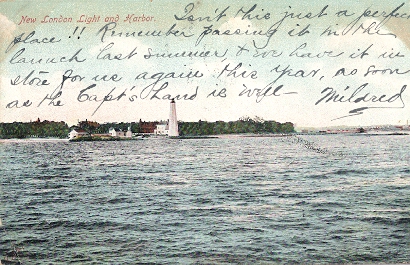 New London Light and Harbor.
Isn't this just a perfect
place!! Remember passing it in the
launch last summer & we have it in
store for us again this year, as soon
as the Capt's hand is well
Mildred